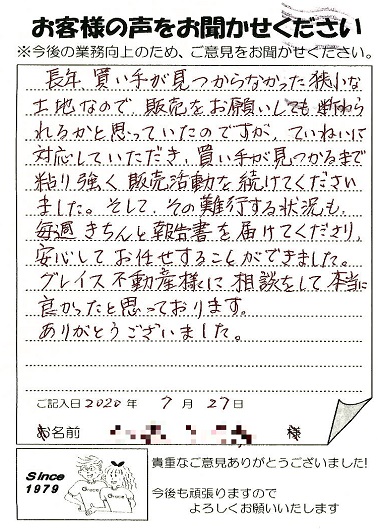 お客様の声をお聞かせください
※今後の業務向上のため、ご意見をお聞かせください。
長年、買い手が見つからなかった狭小な
土地なので、販売をお願いしても断わら
れるかと思っていたのですが、ていねいに
対応していただき、買い手が見つかるまで
粘り強く販売活動を続けてください
ました。そして、その難行する状況も、
毎週きちんと報告書を届けてくださり、
安心してお任せすることができました。
グレイス不動産様に相談をして本当に
良かったと思っております。
ありがとうございました。
ご記入日 2020 年 7 月 27日
お名前 様
Since
1979
貴重なご意見ありがとうございました!
今後も頑張りますので
よろしくお願いいたします